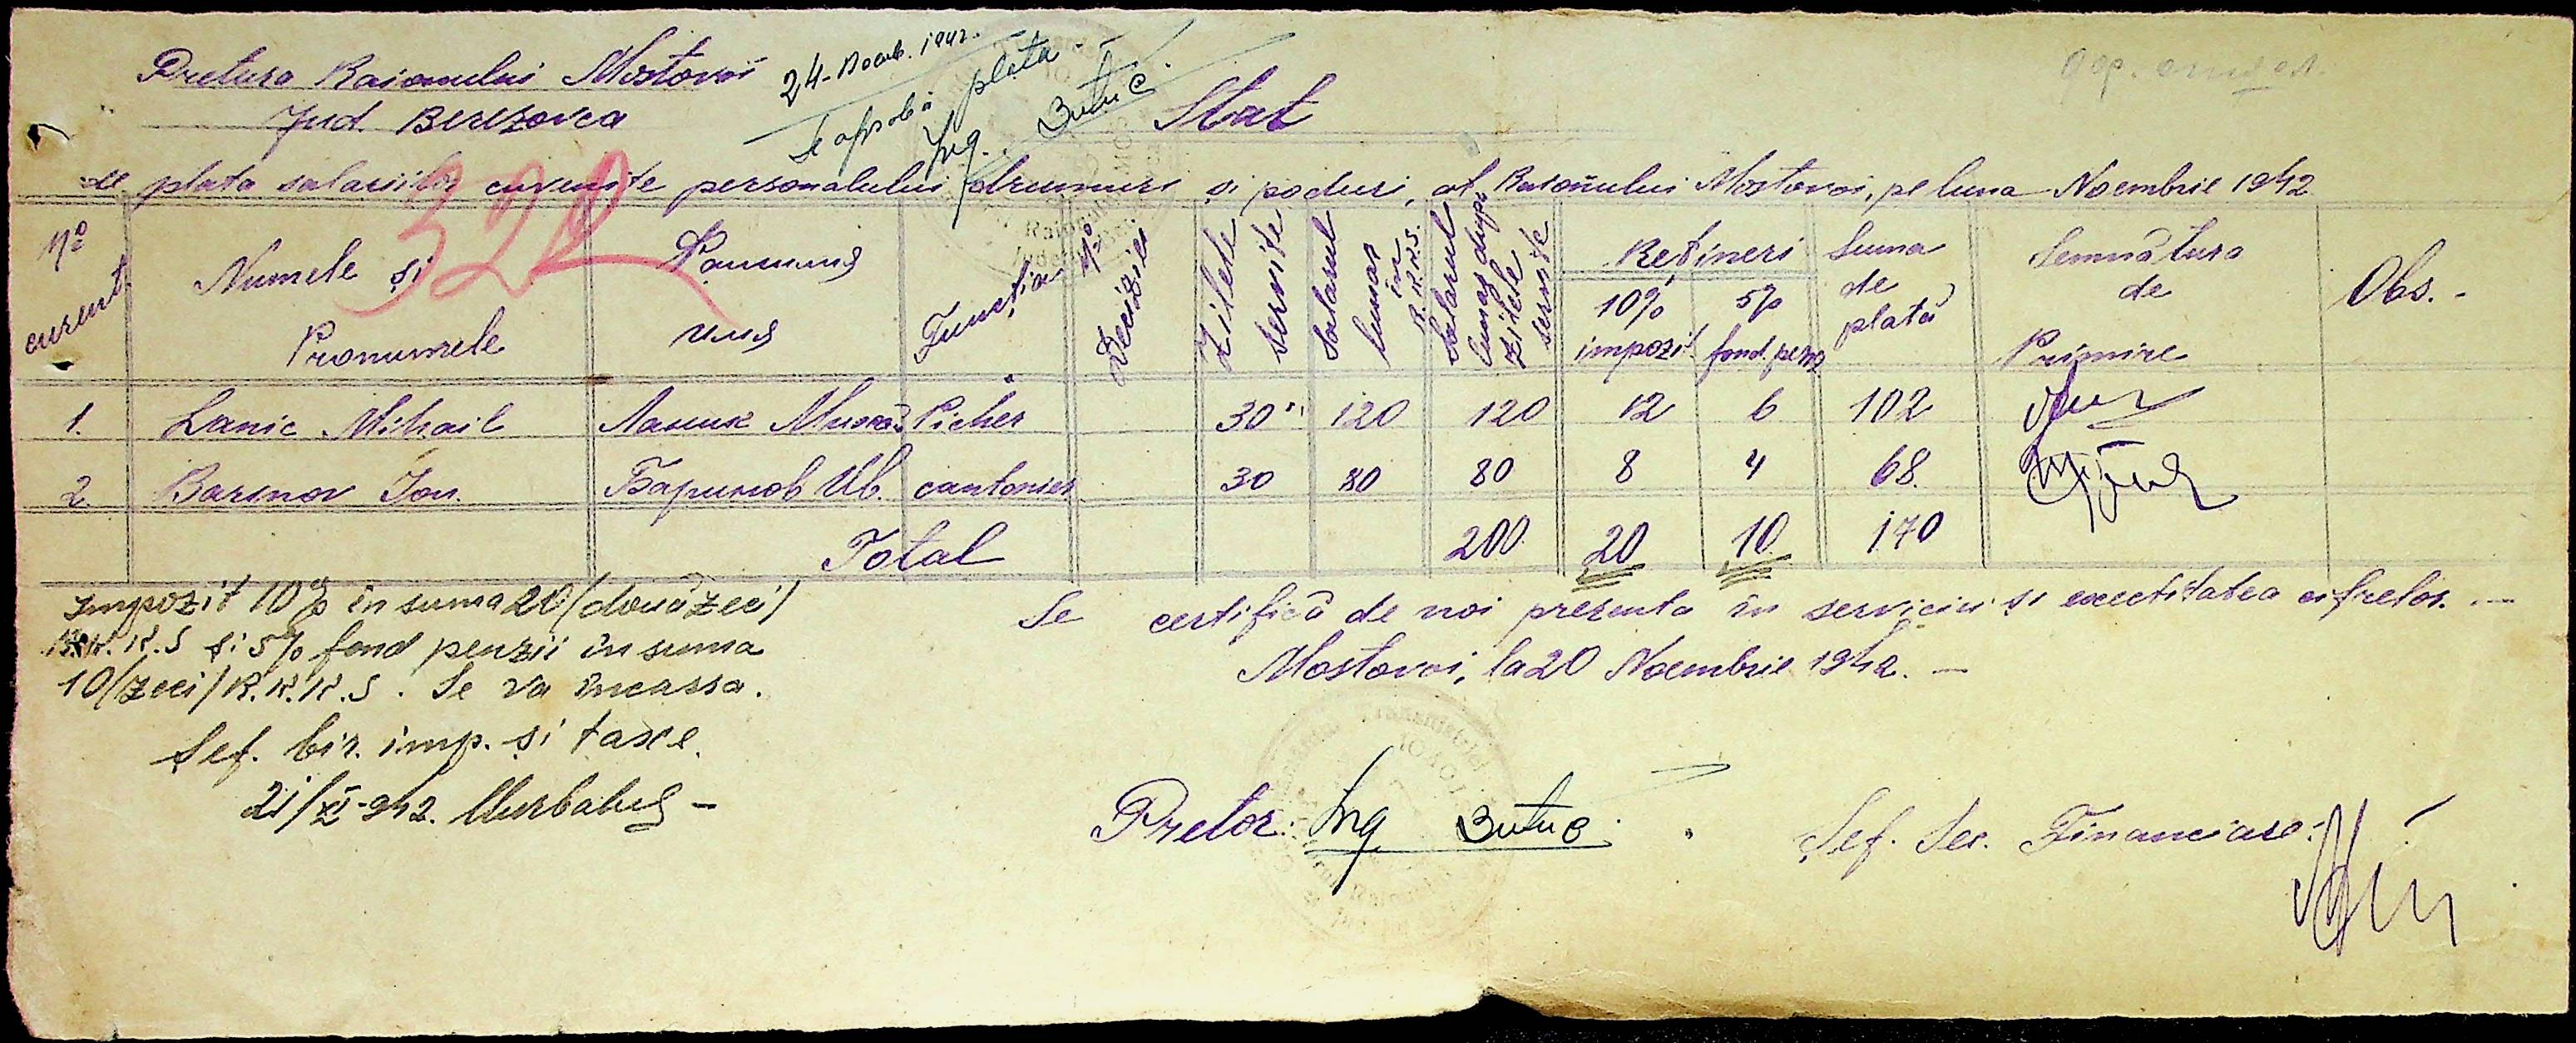 Pretura Raionului Mostovoi
Jud. Berezovca
24 - Noemb. 1942.
Se aprobă plata -
Ing. Butuc
Stat
de plata salariilor cuvenite personalului drumuri și poduri, al Raionului Mostovoi, pe luna Noembrie 1942
322
No curent
Numele și Pronumele
Фамилия имя
Funcția
No Deciziei
Zilele servite
Salarul lunar în R.K.K.S.
Salarul lunar după zilele servite
Rețineri
10% impozit
5% fond. penz
Suma de plată
Semnătura de Primire
Obs. -
1. Lanic Mihail Ланик Михаил Picher 30 120 120 12 6 102
2. Barinov Ion. Баринов Ив. cantonier 30 80 80 8 4 68.
Total 200 20 10 170
Impozit 10% în suma 20/douăzeci/
R.K.K.S și 5% fond penzii în suma
10/zeci/R.K.K.S. Se va încassa.
Șef. bir. imp. și taxe.
21/XI-942.
Se certifică de noi prezenta în serviciu și exectitatea cifrelor. -
Mostovoi, la 20 Noembrie 1942. -
Pretor: Ing Butuc
Șef. Sec. Financiare: